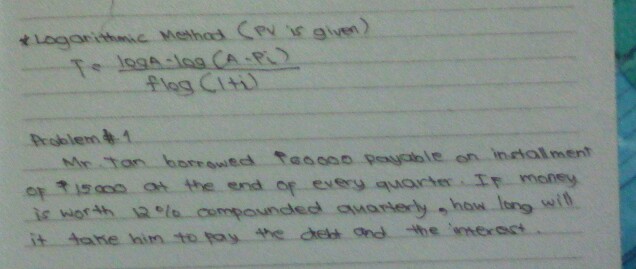 * Logarithmic Method (PV is given)
T = logA - log (A - Pi)
flog (1+i)
Problem #1
Mr. Tan borrowed ₱60000 payable on installment
of ₱15000 at the end of every quarter. If money
is worth 12% compounded quarterly, how long will
it take him to pay the debt and the interest.